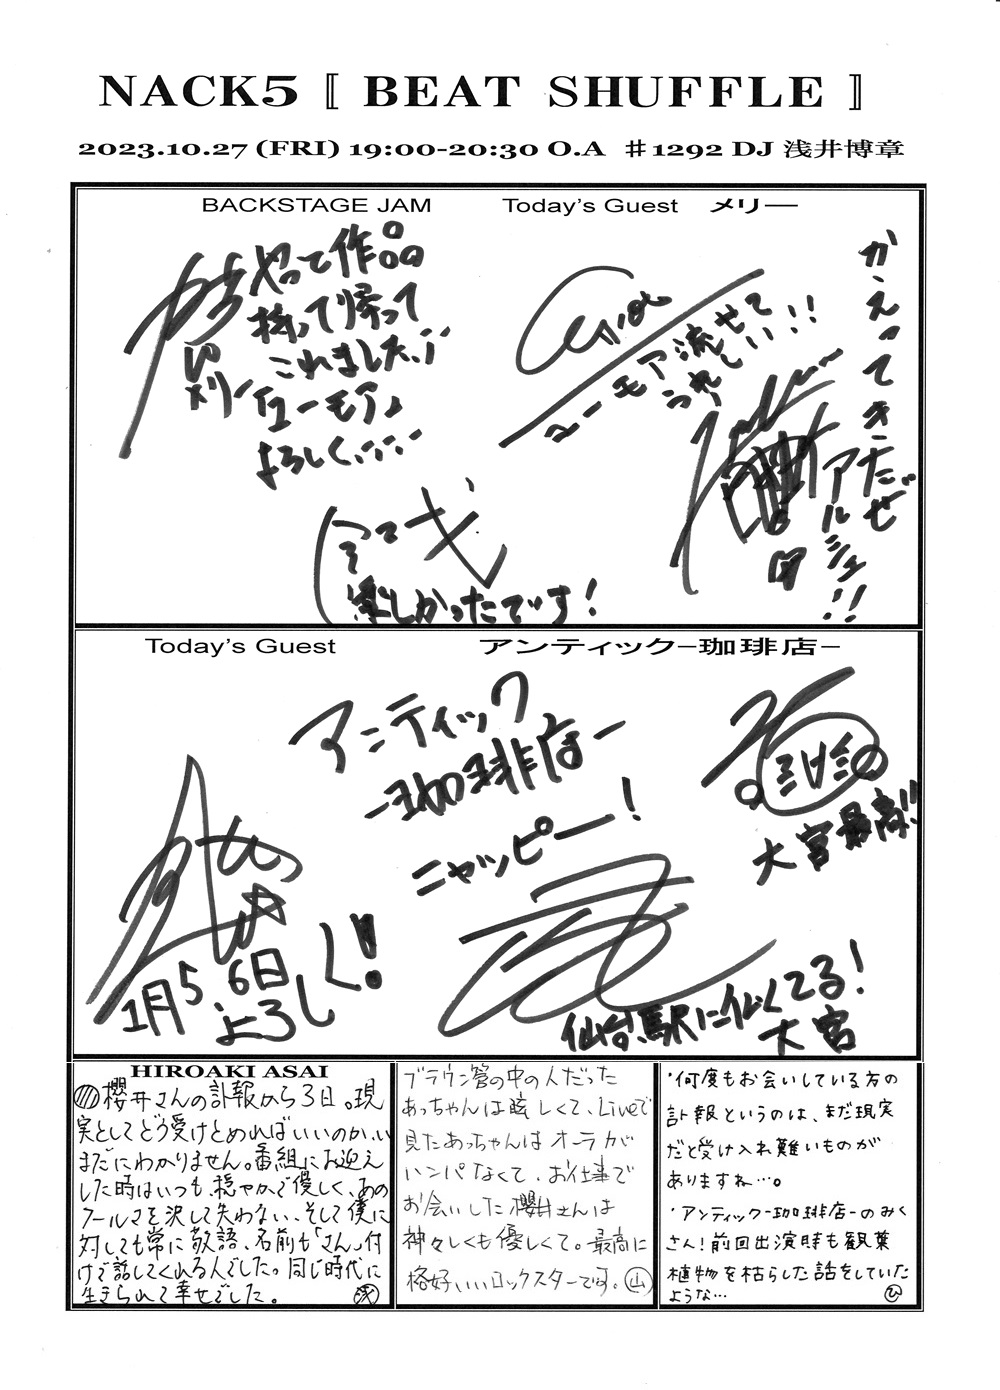 NACK5 〚 BEAT SHUFFLE 〛
2023.10.27 (FRI) 19:00-20:30 O.A ♯1292 DJ 浅井博章
BACKSTAGE JAM Today's Guest メリー
やって作品の
持って帰って
これましたぃ
メリー
よろしく
モア流せて
うれしい!!
かえってきただぜ
アルシェ!!
楽しかったです!
Today's Guest アンティック-珈琲店-
アンティック
-珈琲店-
ニャッピー!
大宮最高!!
1月5、6日
よろしく!
仙台駅に似てる!
大宮
HIROAKI ASAI
櫻井さんの訃報から3日。現
実としてどう受けとめればいいのか、い
まだにわかりません。番組にお迎え
した時はいつも、穏やかで優しく、あの
クールさを決して失わない、そして僕に
対しても常に敬語、名前も「さん」付
けで話してくれる人でした。同じ時代に
生きられて幸せでした。
ブラウン管の中の人だった
あっちゃんは眩しくて、Liveで
見たあっちゃんはオーラが
ハンパなくて、お仕事で
お会いした櫻井さんは
神々しくも優しくて。最高に
格好いいロックスターです。山
・何度もお会いしている方の
訃報というのは、まだ現実
だと受け入れ難いものが
ありますね…。
・アンティック-珈琲店-のみく
さん!前回出演時も観葉
植物を枯らした話をしていた
ような… ひ